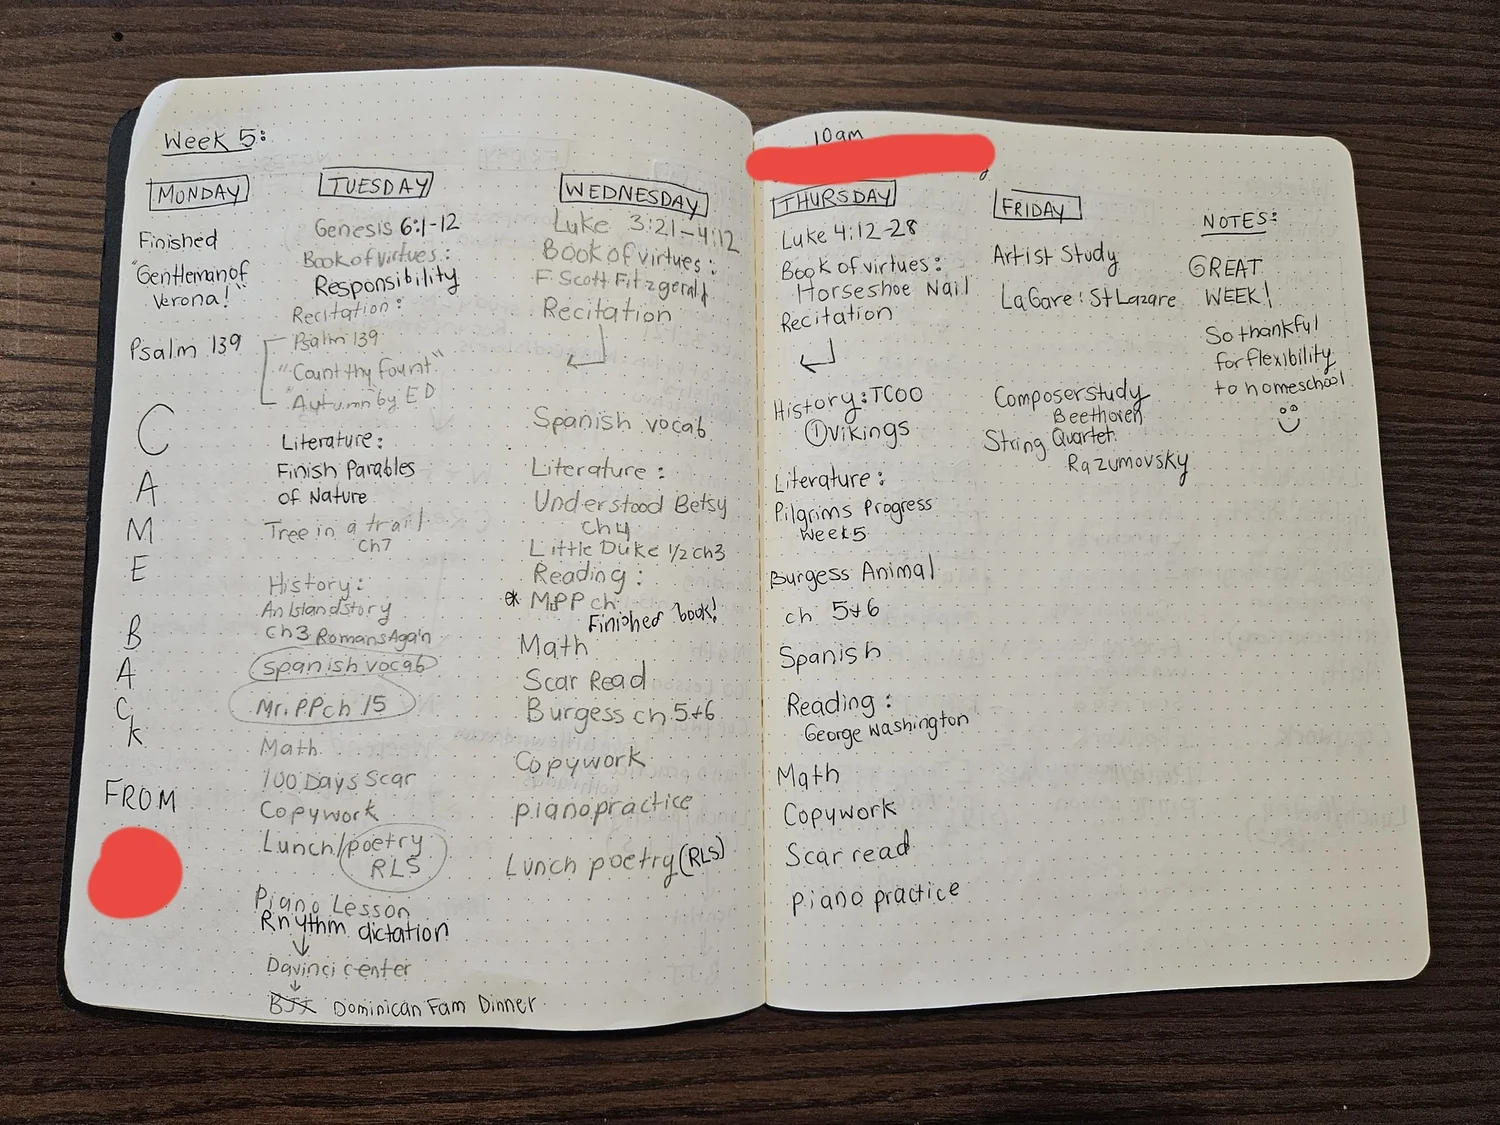 Week 5:
MONDAY
Finished
"Gentleman of
Verona!"
Psalm 139
C
A
M
E
B
A
C
K
FROM
TUESDAY
Genesis 6:1-12
Book of virtues:
Responsibility
Recitation:
Psalm 139
"Count thy fount"
"Autumn by ED
Literature:
Finish Parables
of Nature
Tree in a trail
Ch7
History:
An Island story
Ch3 Romans Again
Spanish vocab
Mr. PP ch 15
Math
100 Days Scar
Copywork
Lunch/poetry
RLS
Piano Lesson
Rhythm dictation
Davinci center
BJJ Dominican Fam Dinner
WEDNESDAY
Luke 3:21-4:12
Book of virtues:
F. Scott Fitzgerald
Recitation
Spanish vocab
Literature:
Understood Betsy
Ch4
Little Duke 1/2 ch3
Reading:
* MrPP ch
Finished book!
Math
Scar Read
Burgess ch 5+6
Copywork
piano practice
Lunch poetry (RLS)
10am
THURSDAY
Luke 4:12-28
Book of virtues:
Horseshoe Nail
Recitation
History: TCOO
① Vikings
Literature:
Pilgrims Progress
week 5
Burgess Animal
ch 5+6
Spanish
Reading:
George Washington
Math
Copywork
Scar read
piano practice
FRIDAY
Artist Study
La Gare: St Lazare
Composer study
Beethoven
String Quartet
Razumovsky
NOTES:
GREAT
WEEK!
So thankful
for flexibility
to homeschool